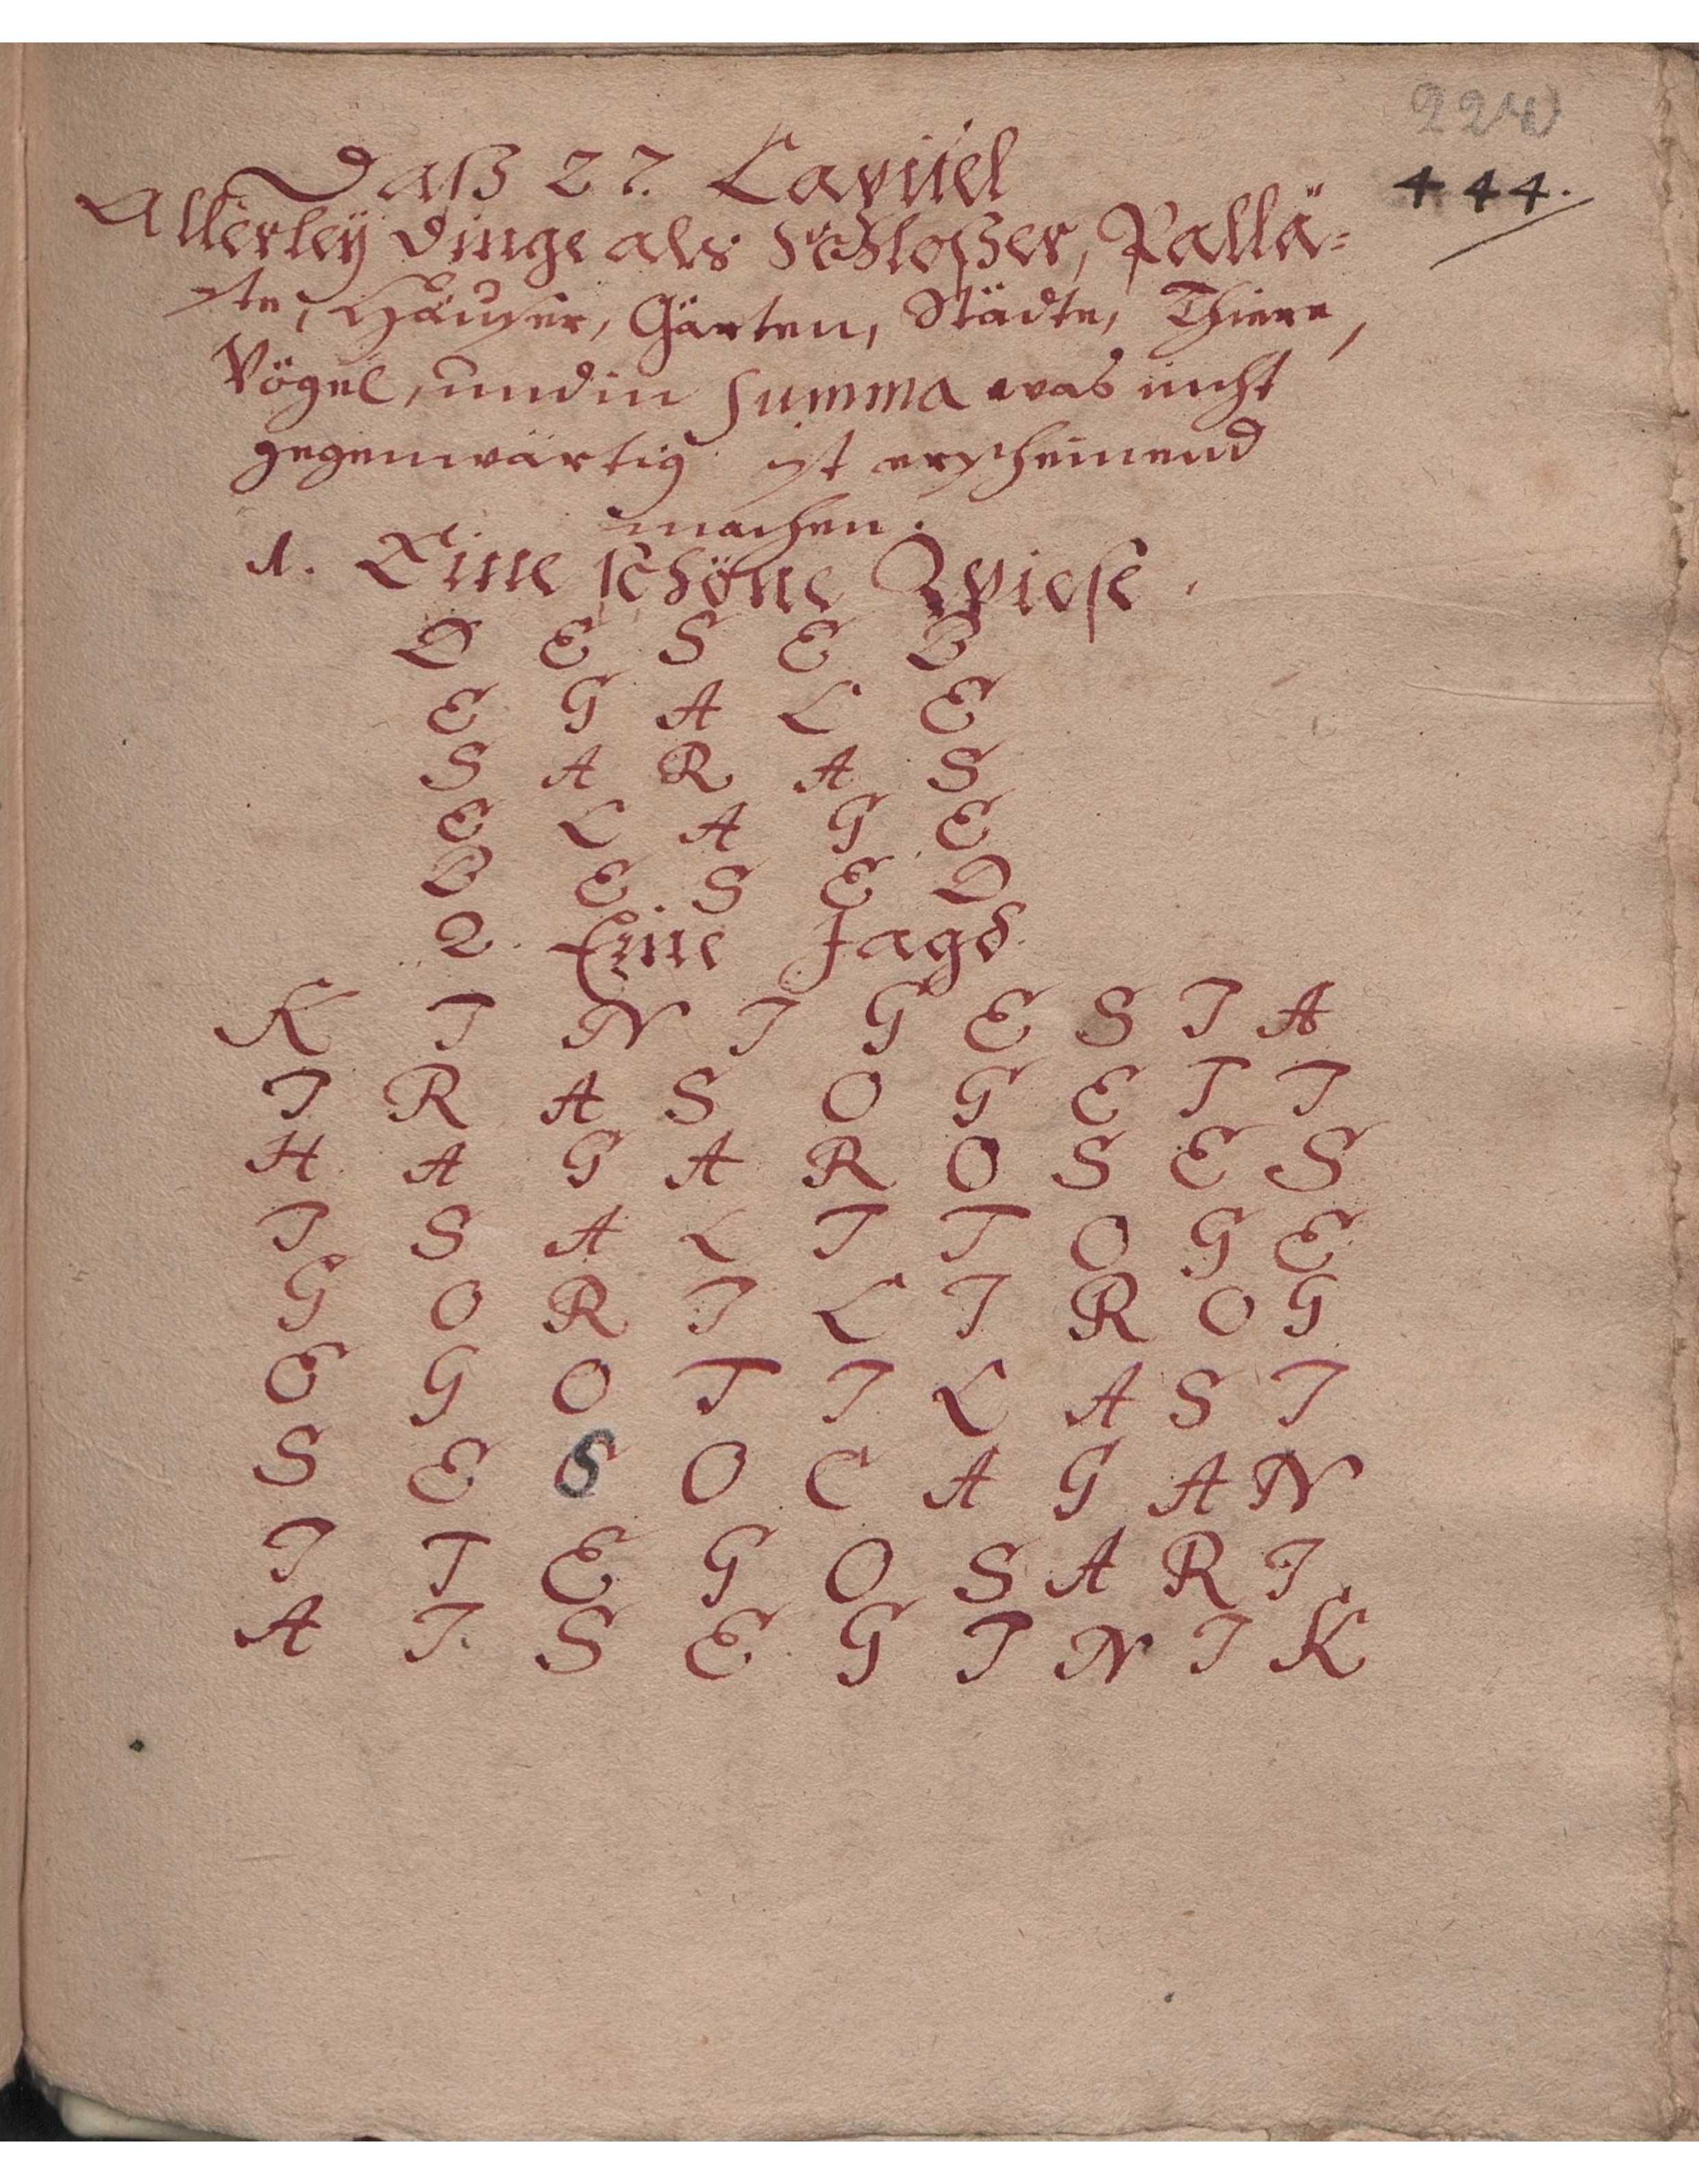 220
444.
Daß 27. Capitel
Allerleÿ dinge als Schloßer, Pallä=
ste, Häuser, Gärten, Städte, Thiere,
Vögel, und in Summa was nicht
gegenwärtig ist erscheinend
machen.
1. Eine schöne Wiese.
D E S E B
E G A L E
S A R A S
E L A G E
B E S E D
2. Eine Jagd.
K I N I G E S I A
I R A S O G E T I
H A G A R O S E S
I S A L I T O G E
G O R I L I R O G
E G O T I L A S I
S E S O C A G A N
I T E G O S A R I
A I S E G I N I K